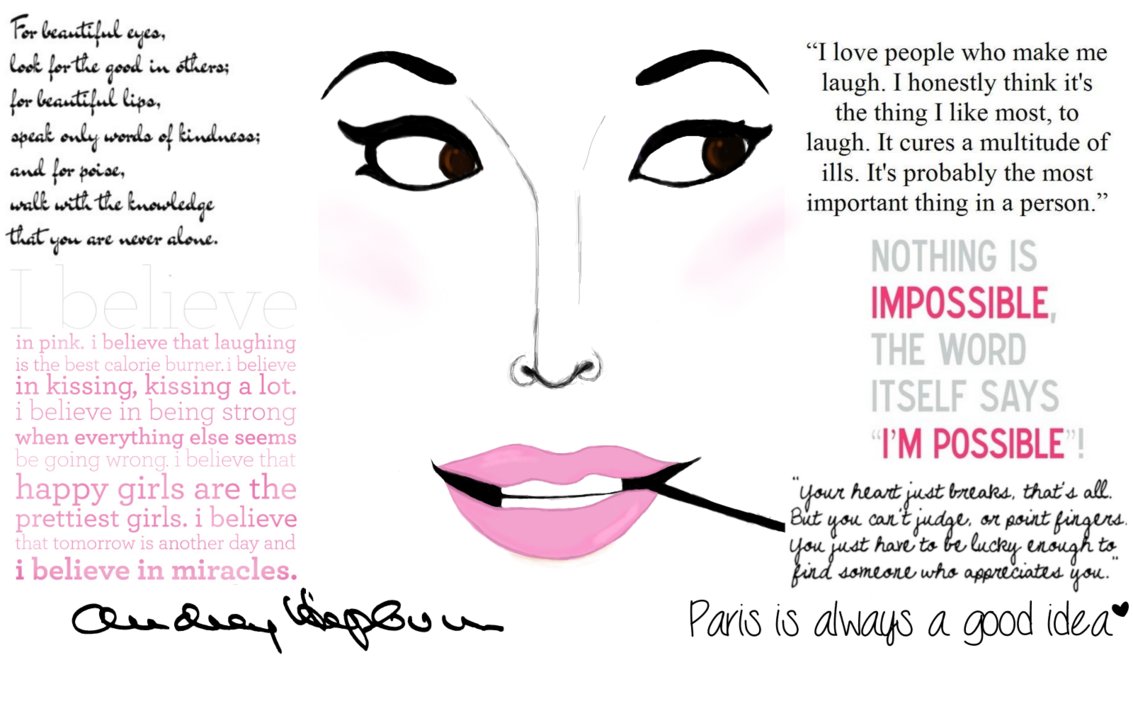 For beautiful eyes,
look for the good in others;
for beautiful lips,
speak only words of kindness;
and for poise,
walk with the knowledge
that you are never alone.
I believe
in pink. i believe that laughing
is the best calorie burner. i believe
in kissing, kissing a lot.
i believe in being strong
when everything else seems
be going wrong. i believe that
happy girls are the
prettiest girls. i believe
that tomorrow is another day and
i believe in miracles.
Audrey Hepburn
“I love people who make me
laugh. I honestly think it's
the thing I like most, to
laugh. It cures a multitude of
ills. It's probably the most
important thing in a person.”
NOTHING IS
IMPOSSIBLE,
THE WORD
ITSELF SAYS
“I'M POSSIBLE”!
"Your heart just breaks, that's all.
But you can't judge, or point fingers.
You just have to be lucky enough to
find someone who appreciates you."
Paris is always a good idea♥